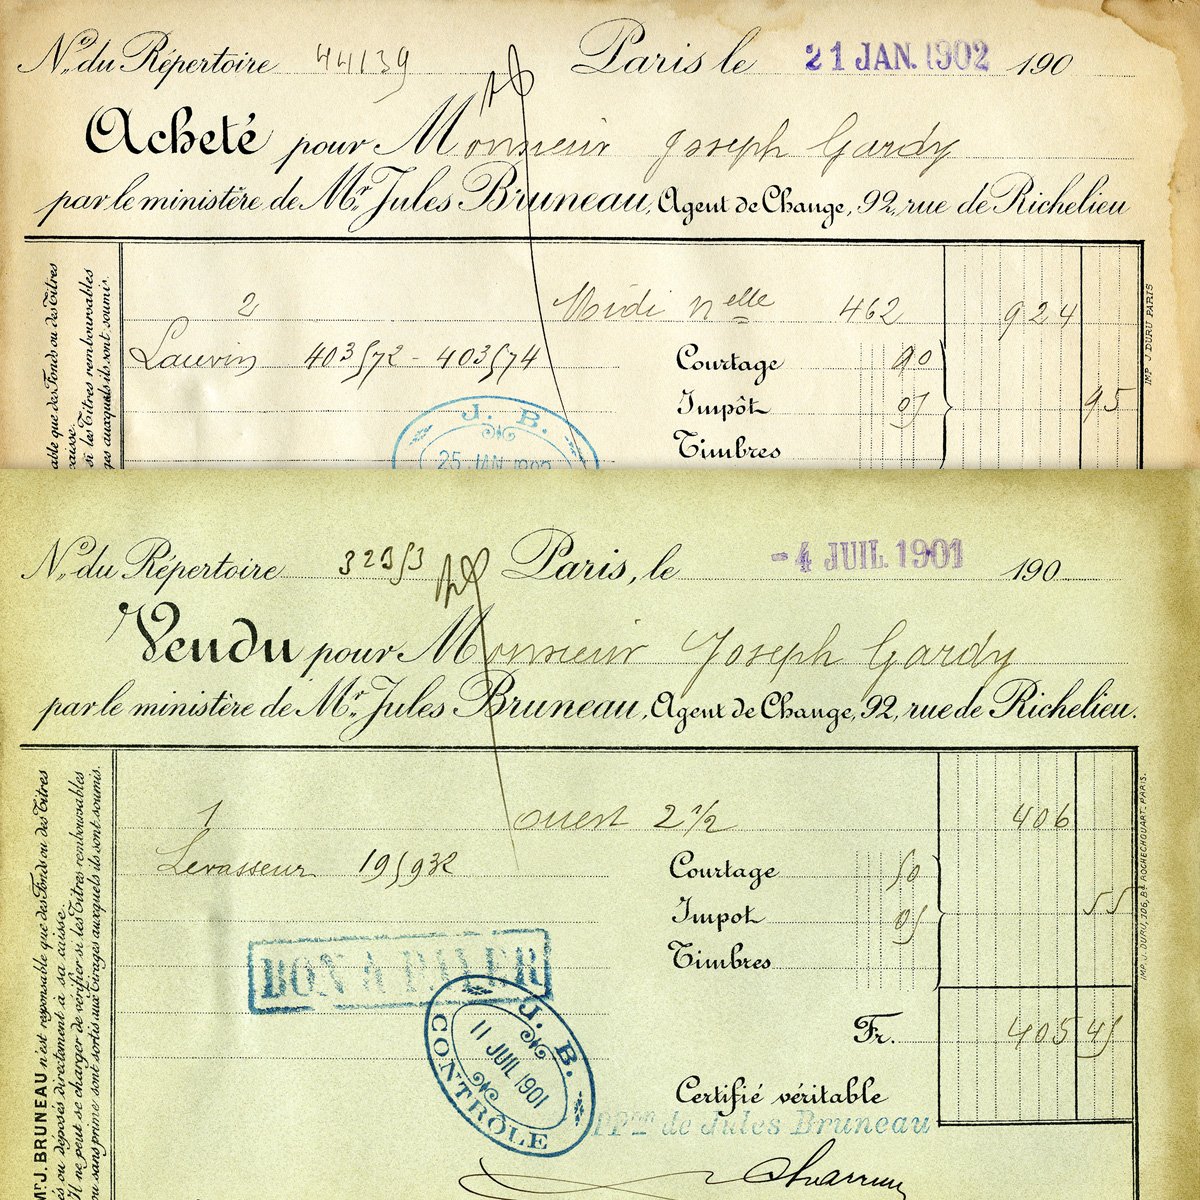 No. du Répertoire 44139 Paris le 21 JAN. 1902 190
Acheté pour Monsieur Joseph Gardy
par le ministère de Mr. Jules Bruneau, Agent de Change, 92, rue de Richelieu
2 Midi nelle 462 924
Lauvin 403572 - 403574
Courtage 90
Impôt 05 95
Timbres
able que des Fonds ou des Titres
caisse.
si les Titres remboursables
ges auxquels ils sont soumis.
IMP J DURU PARIS
J. B.
25 JAN 1902
No. du Répertoire 32353 Paris, le -4 JUIL 1901 190
Vendu pour Monsieur Joseph Gardy
par le ministère de Mr. Jules Bruneau, Agent de Change, 92, rue de Richelieu.
1 Ouest 2 1/2 406
Levasseur 195932
Courtage 50
Impot 05 55
Timbres
BON A PAYER
J. B.
11 JUIL 1901
CONTRÔLE
Fr. 405 45
Certifié véritable
PPon de Jules Bruneau
Mr. J. BRUNEAU n'est responsable que des Fonds ou des Titres
és ou déposés directement à sa caisse.
Il ne peut se charger de vérifier si les Titres remboursables
ou sans prime sont sortis aux Tirages auxquels ils sont soumis.
IMP. J. DURU, 106, Bd. ROCHECHOUART. PARIS.